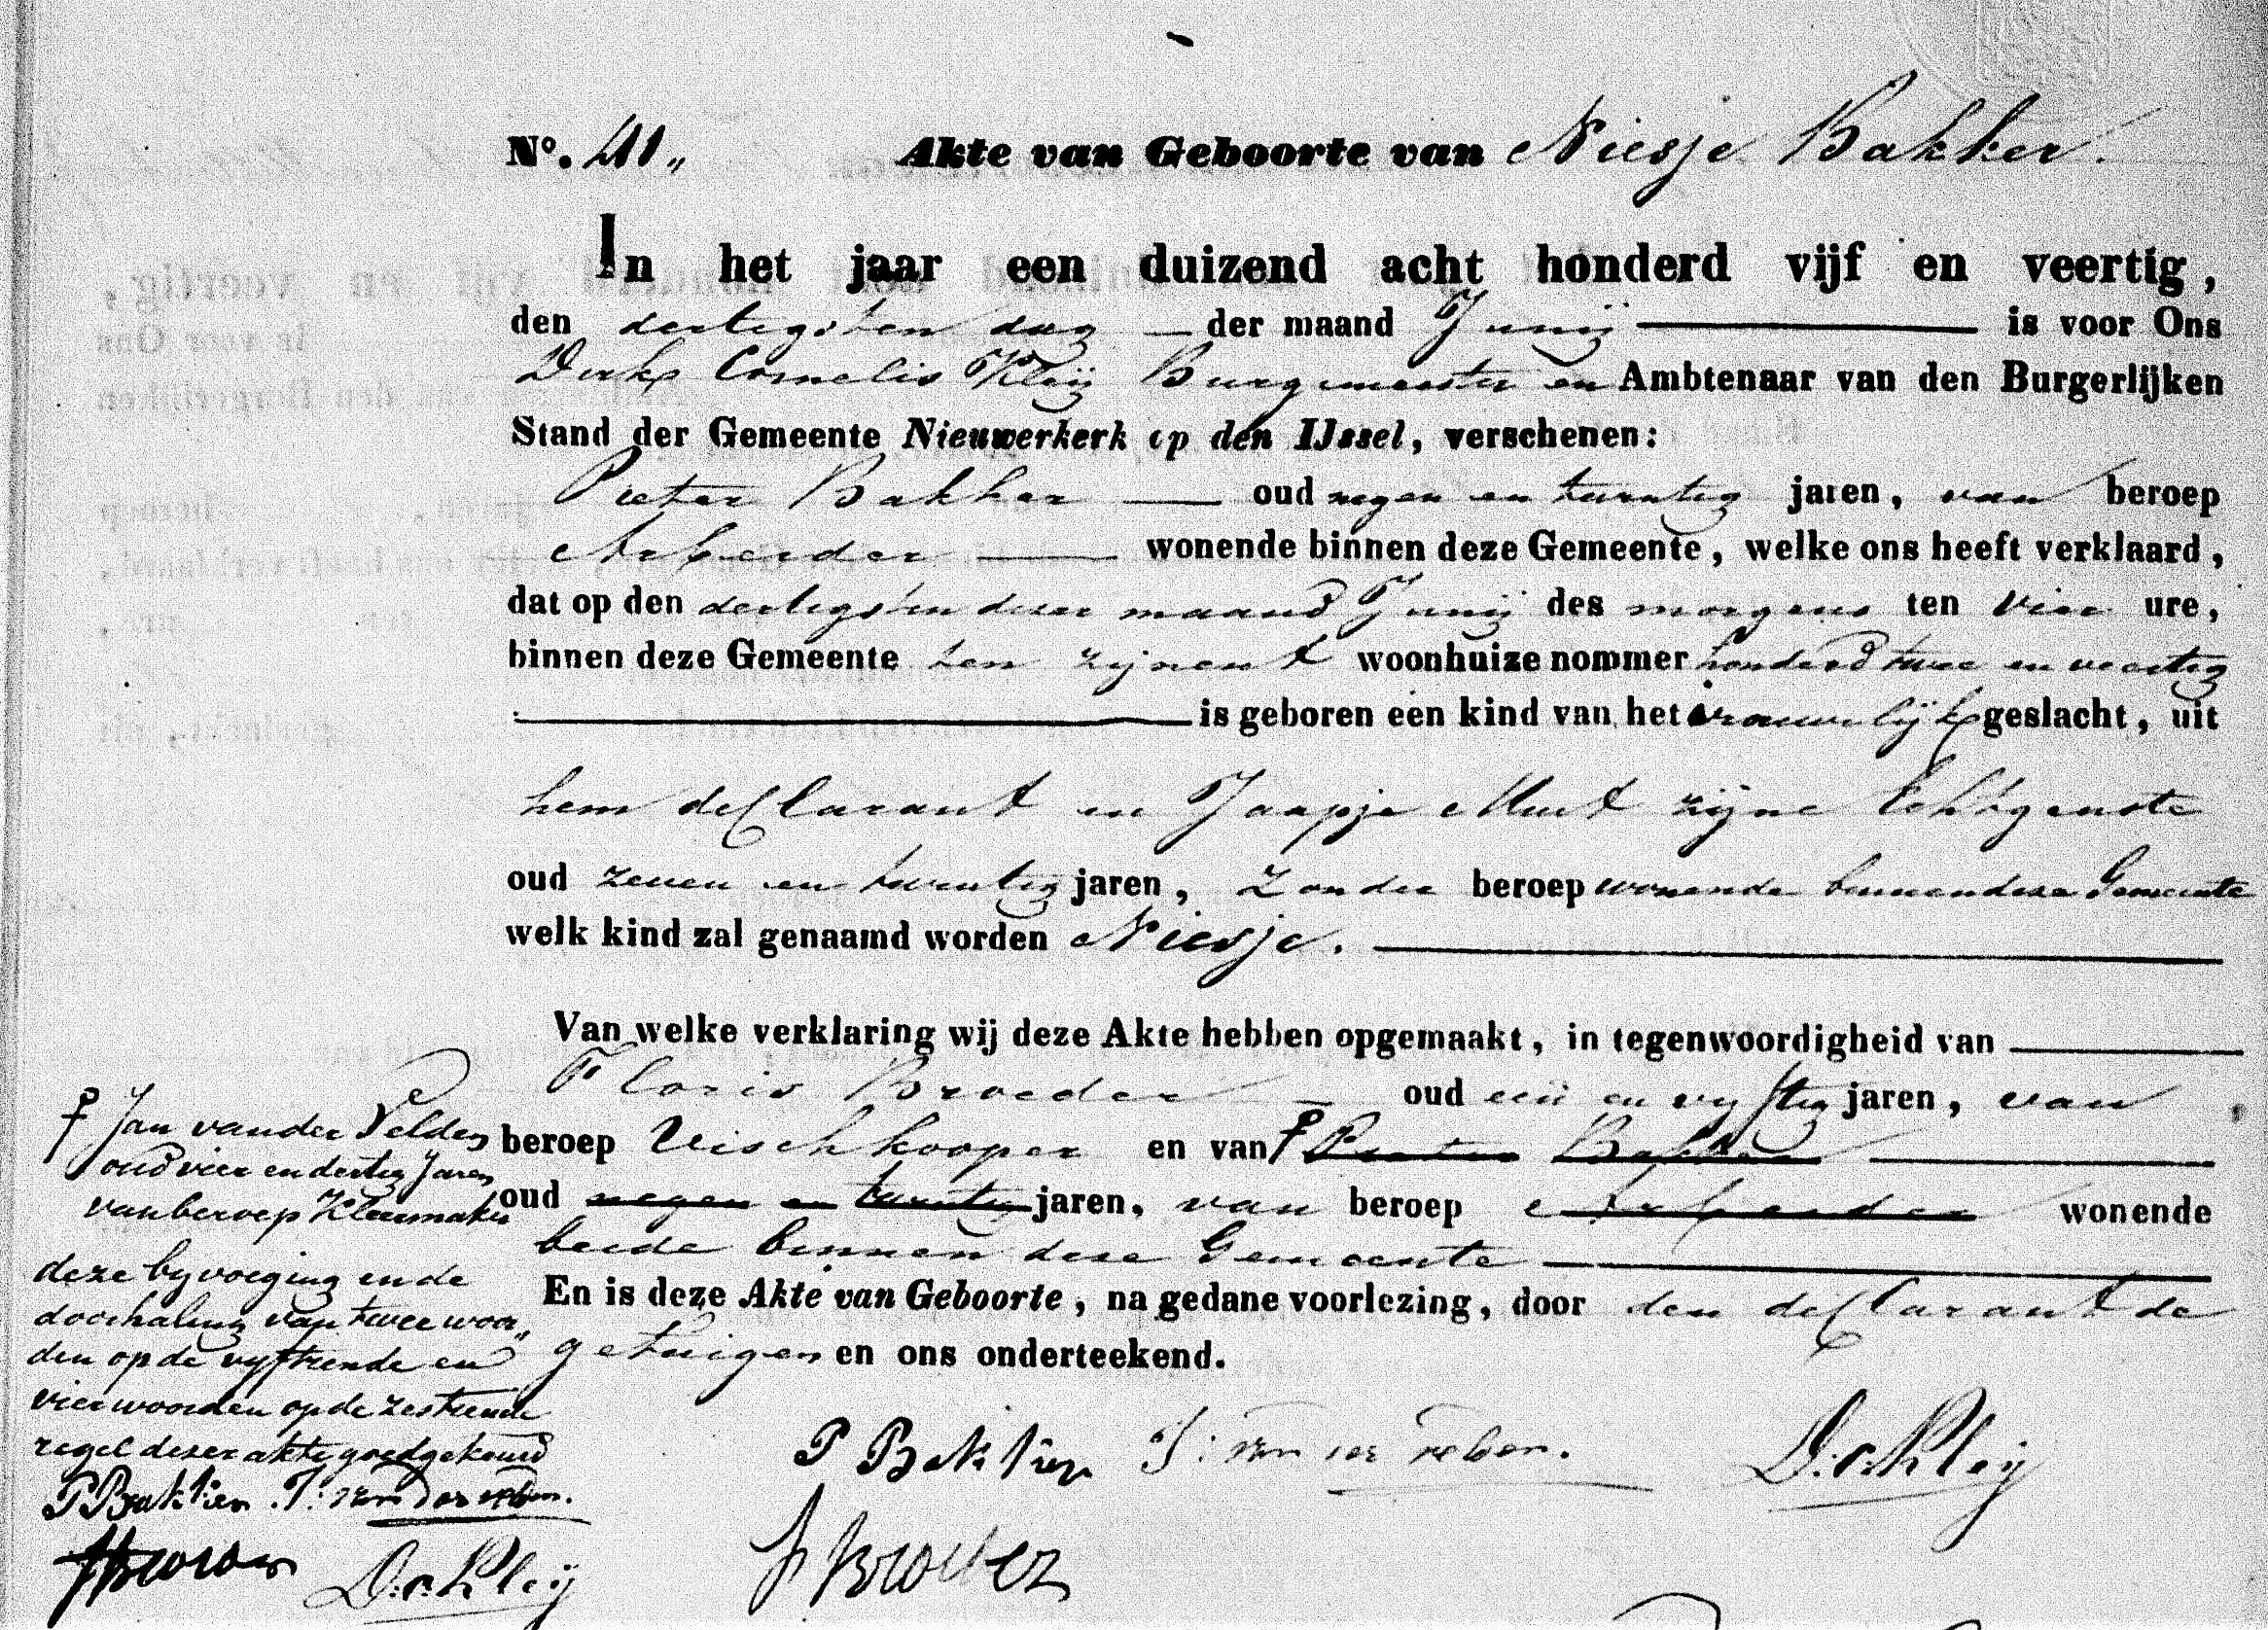 No. 41„ Akte van Geboorte van Niesje Bakker.
In het jaar een duizend acht honderd vijf en veertig,
den dertigsten dag der maand Junij is voor Ons
Dirk Cornelis Kleij Burgemeester en Ambtenaar van den Burgerlijken
Stand der Gemeente Nieuwerkerk op den IJssel, verschenen:
Pieter Bakker oud negen en twintig jaren, van beroep
Arbeider wonende binnen deze Gemeente, welke ons heeft verklaard,
dat op den dertigsten dezer maand Junij des morgens ten vier ure,
binnen deze Gemeente ten zijnent woonhuize nommer honderd twee en veertig
is geboren een kind van het vrouwelijk geslacht, uit
hem declarant en Jaapje Muit zijne Echtgenote
oud zeven en twintig jaren, zonder beroep wonende binnen deze Gemeente
welk kind zal genaamd worden Niesje.
Van welke verklaring wij deze Akte hebben opgemaakt, in tegenwoordigheid van
Floris Broeder oud een en vyftig jaren, van
beroep Vischkooper en van Pieter Bakker
oud negen en twintig jaren, van beroep Arbeider wonende
beide binnen deze Gemeente
En is deze Akte van Geboorte, na gedane voorlezing, door den declarant de
getuigen en ons onderteekend.
Jan van der Velden
oud vier en dertig Jaren
van beroep Kleermaker
deze byvoeging en de
doorhaling van twee woor„
den op de vyftiende en
vier woorden op de zestiende
regel dezer akte goedgekeurd
P Bakker J: van der velden.
D.C. Kleij
P Bakker J: van der velden. D.C. Kleij